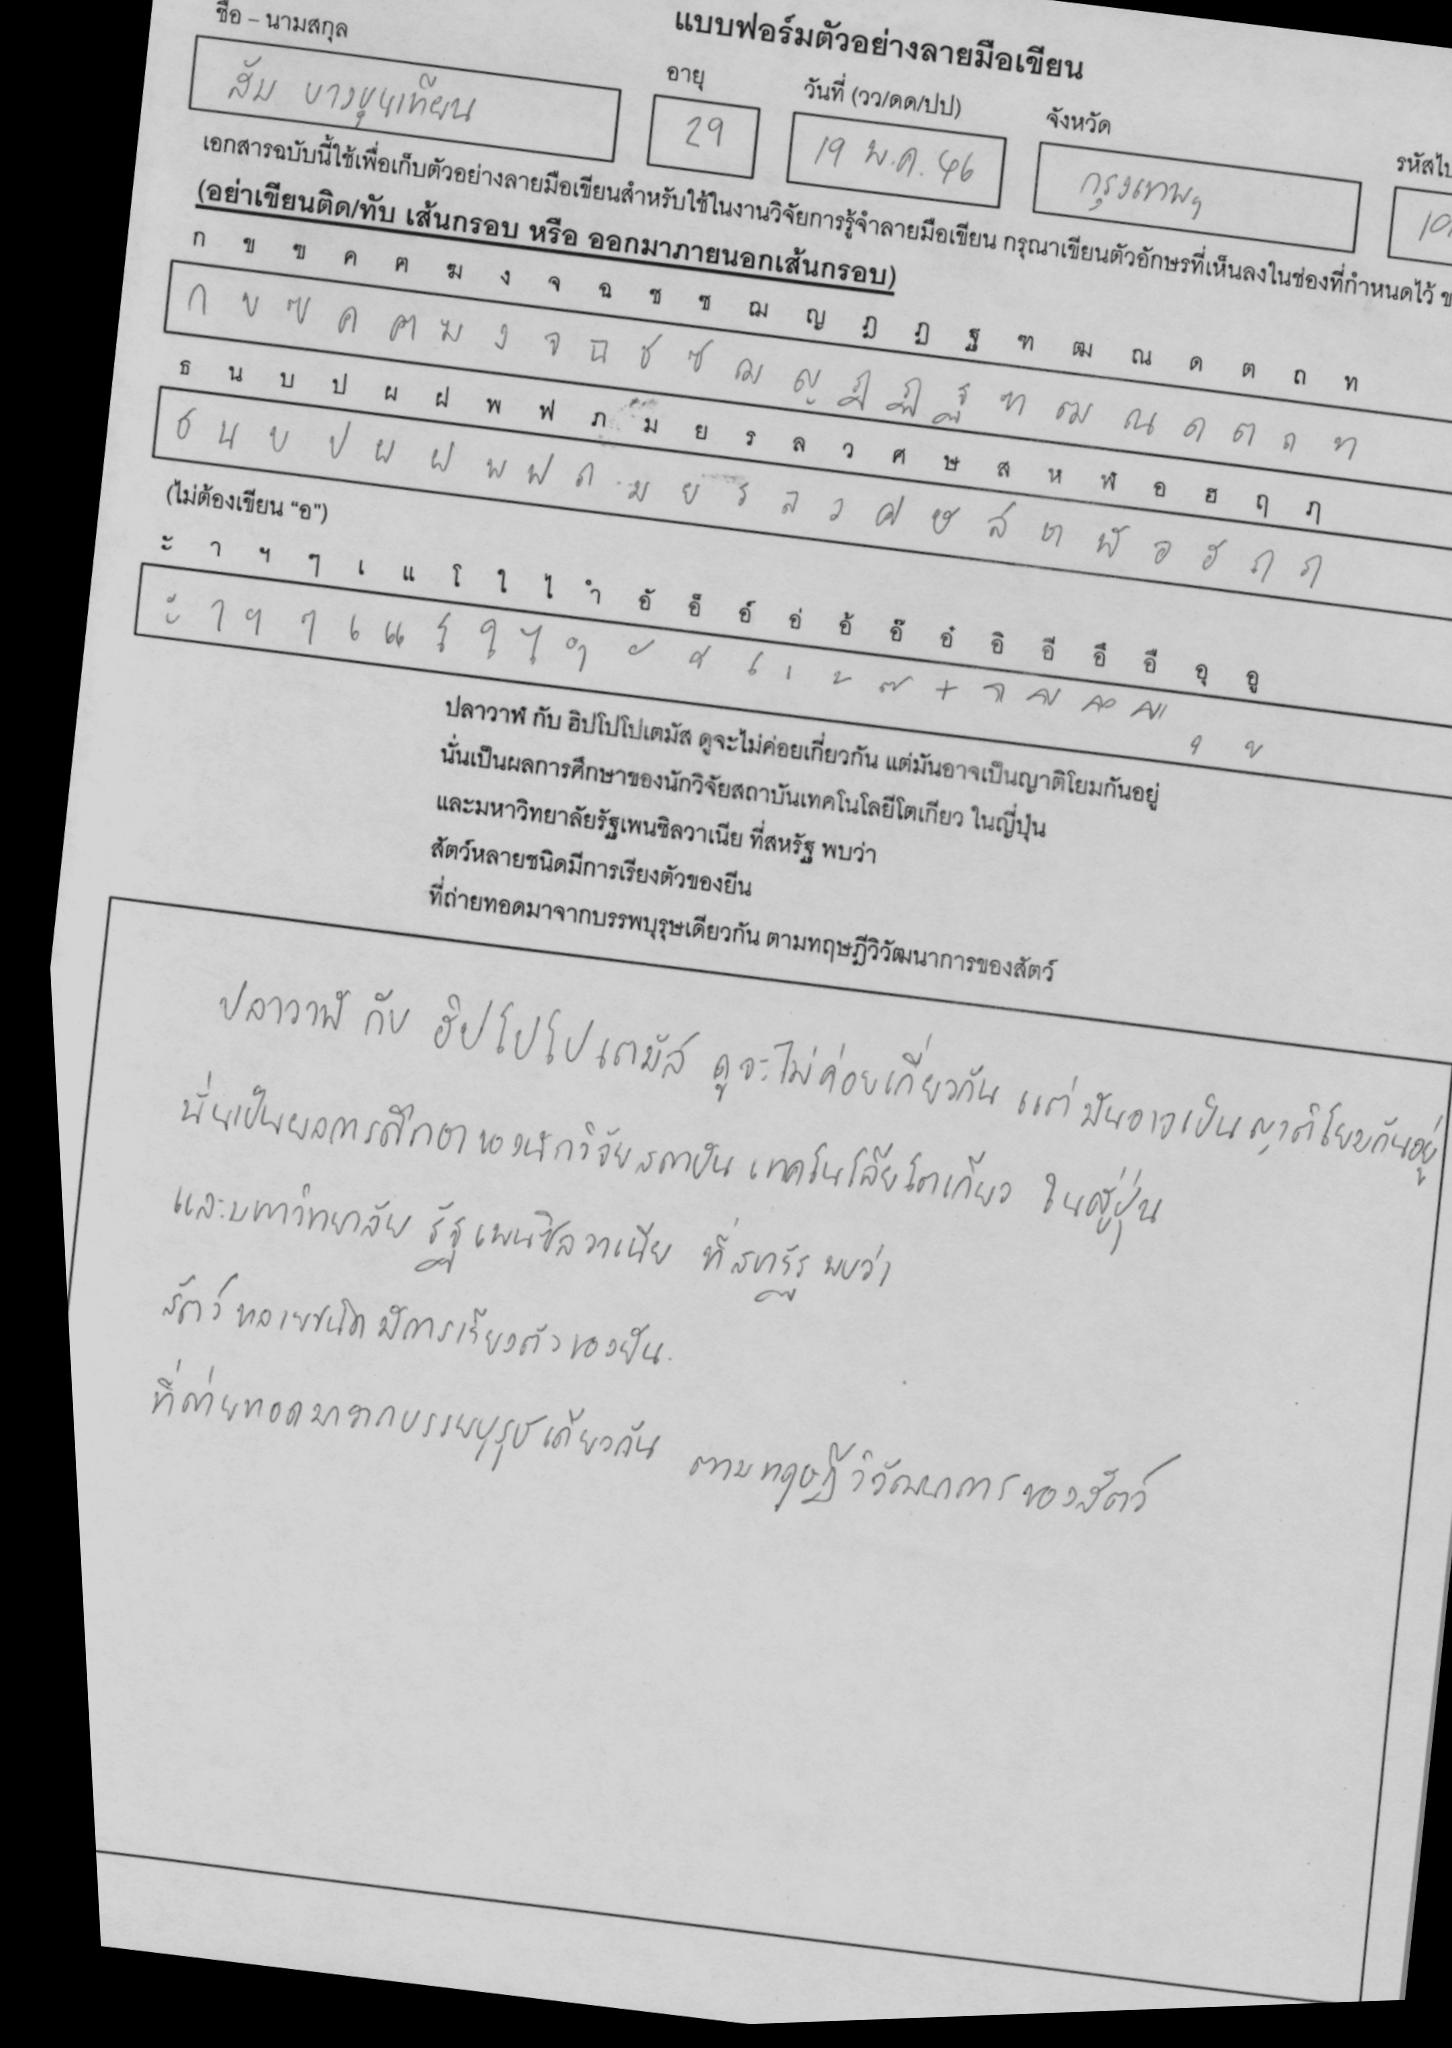 แบบฟอร์มตัวอย่างลายมือเขียน
ชื่อ – นามสกุล อายุ วันที่ (วว/ดด/ปป) จังหวัด
ส้ม บางขุนเทียน 29 19 พ.ค. 46 กรุงเทพฯ
เอกสารฉบับนี้ใช้เพื่อเก็บตัวอย่างลายมือเขียนสำหรับใช้ในงานวิจัยการรู้จำลายมือเขียน กรุณาเขียนตัวอักษรที่เห็นลงในช่องที่กำหนดไว้
(อย่าเขียนติด/ทับ เส้นกรอบ หรือ ออกมาภายนอกเส้นกรอบ)
ก ข ฃ ค ฅ ฆ ง จ ฉ ช ซ ฌ ญ ฎ ฏ ฐ ฑ ฒ ณ ด ต ถ ท
ก ข ฃ ค ฅ ฆ ง จ ฉ ช ซ ฌ ญ ฎ ฏ ฐ ฑ ฒ ณ ด ต ถ ท
ธ น บ ป ผ ฝ พ ฟ ภ ม ย ร ล ว ศ ษ ส ห ฬ อ ฮ ฤ ฦ
ธ น บ ป ผ ฝ พ ฟ ภ ม ย ร ล ว ศ ษ ส ห ฬ อ ฮ ฤ ฦ
(ไม่ต้องเขียน "อ")
ะ า ฯ ๆ เ แ โ ใ ไ ำ อั อ็ อ์ อ่ อ้ อ๊ อ๋ อิ อี อึ อื อุ อู
ะ า ฯ ๆ เ แ โ ใ ไ ำ ั ็ ์ ่ ้ ๊ ๋ ิ ี ึ ื ุ ู
ปลาวาฬ กับ ฮิปโปโปเตมัส ดูจะไม่ค่อยเกี่ยวกัน แต่มันอาจเป็นญาติโยมกันอยู่
นั่นเป็นผลการศึกษาของนักวิจัยสถาบันเทคโนโลยีโตเกียว ในญี่ปุ่น
และมหาวิทยาลัยรัฐเพนซิลวาเนีย ที่สหรัฐ พบว่า
สัตว์หลายชนิดมีการเรียงตัวของยีน
ที่ถ่ายทอดมาจากบรรพบุรุษเดียวกัน ตามทฤษฎีวิวัฒนาการของสัตว์
ปลาวาฬ กับ ฮิปโปโปเตมัส ดูจะไม่ค่อยเกี่ยวกัน แต่มันอาจเป็นญาติโยมกันอยู่
นั่นเป็นผลการศึกษาของนักวิจัยสถาบันเทคโนโลยีโตเกียว ในญี่ปุ่น
และมหาวิทยาลัย รัฐเพนซิลวาเนีย ที่สหรัฐ พบว่า
สัตว์หลายชนิดมีการเรียงตัวของยีน.
ที่ถ่ายทอดมาจากบรรพบุรุษเดียวกัน ตามทฤษฎีวิวัฒนาการของสัตว์